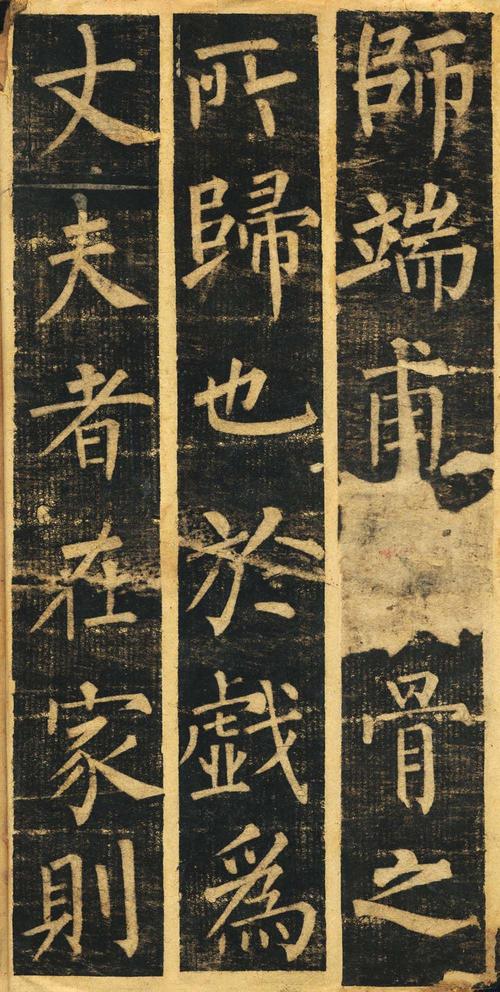 師端甫骨之
所歸也於戯為
丈夫者在家則